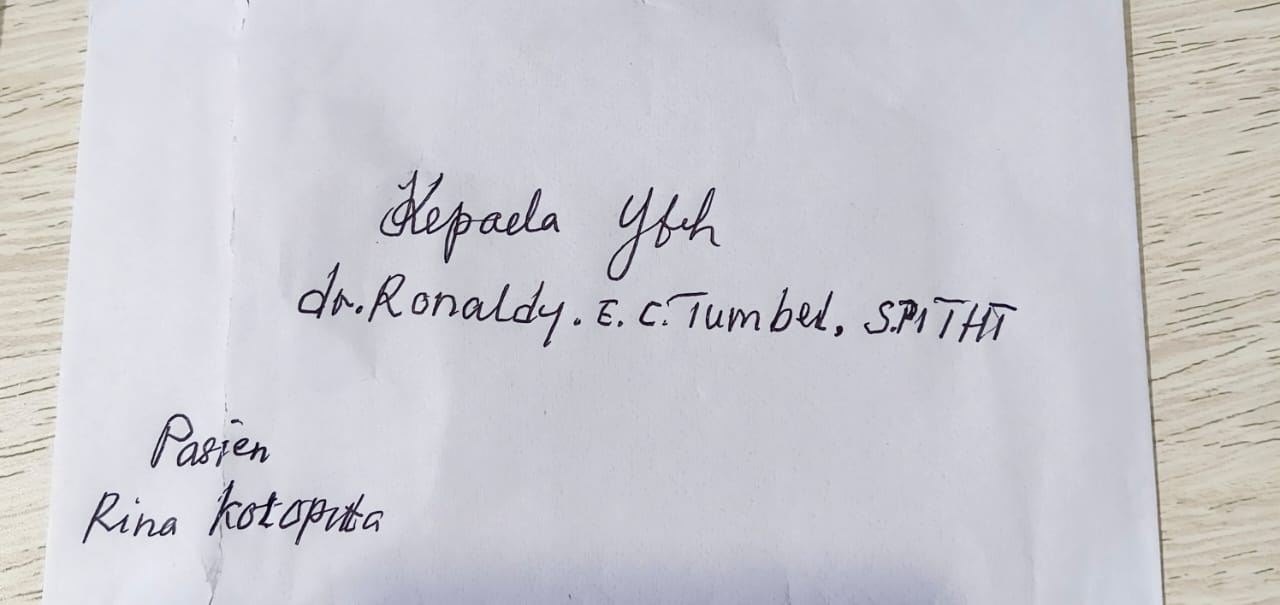 Kepada Yth
dr. Ronaldy. E. C. Tumbel, S.P1 THT
Pasien
Rina